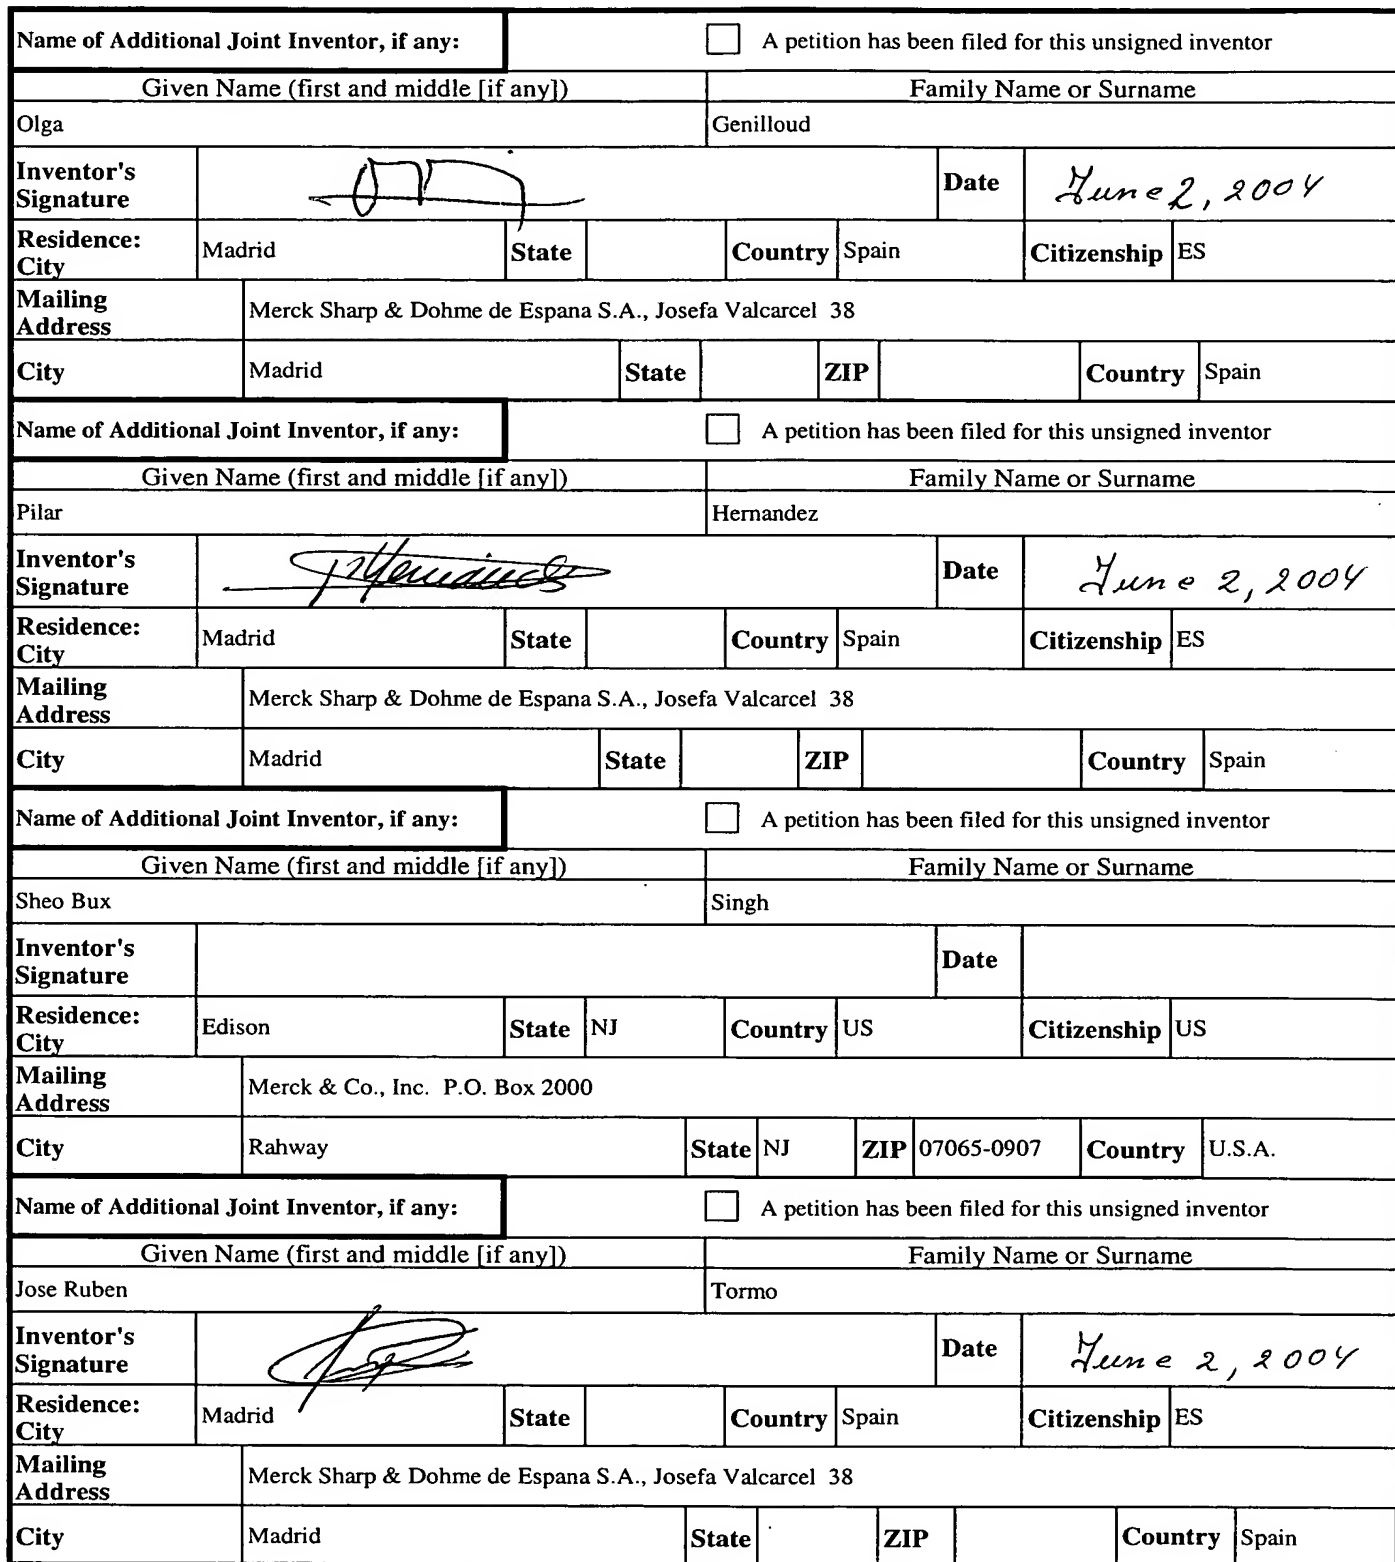 Name of Additional Joint Inventor, if any: A petition has been filed for this unsigned inventor
Given Name (first and middle [if any]) Family Name or Surname
Olga Genilloud
Inventor's Signature Date June 2, 2004
Residence: City Madrid State Country Spain Citizenship ES
Mailing Address Merck Sharp & Dohme de Espana S.A., Josefa Valcarcel 38
City Madrid State ZIP Country Spain
Name of Additional Joint Inventor, if any: A petition has been filed for this unsigned inventor
Given Name (first and middle [if any]) Family Name or Surname
Pilar Hernandez
Inventor's Signature Date June 2, 2004
Residence: City Madrid State Country Spain Citizenship ES
Mailing Address Merck Sharp & Dohme de Espana S.A., Josefa Valcarcel 38
City Madrid State ZIP Country Spain
Name of Additional Joint Inventor, if any: A petition has been filed for this unsigned inventor
Given Name (first and middle [if any]) Family Name or Surname
Sheo Bux Singh
Inventor's Signature Date
Residence: City Edison State NJ Country US Citizenship US
Mailing Address Merck & Co., Inc. P.O. Box 2000
City Rahway State NJ ZIP 07065-0907 Country U.S.A.
Name of Additional Joint Inventor, if any: A petition has been filed for this unsigned inventor
Given Name (first and middle [if any]) Family Name or Surname
Jose Ruben Tormo
Inventor's Signature Date June 2, 2004
Residence: City Madrid State Country Spain Citizenship ES
Mailing Address Merck Sharp & Dohme de Espana S.A., Josefa Valcarcel 38
City Madrid State ZIP Country Spain